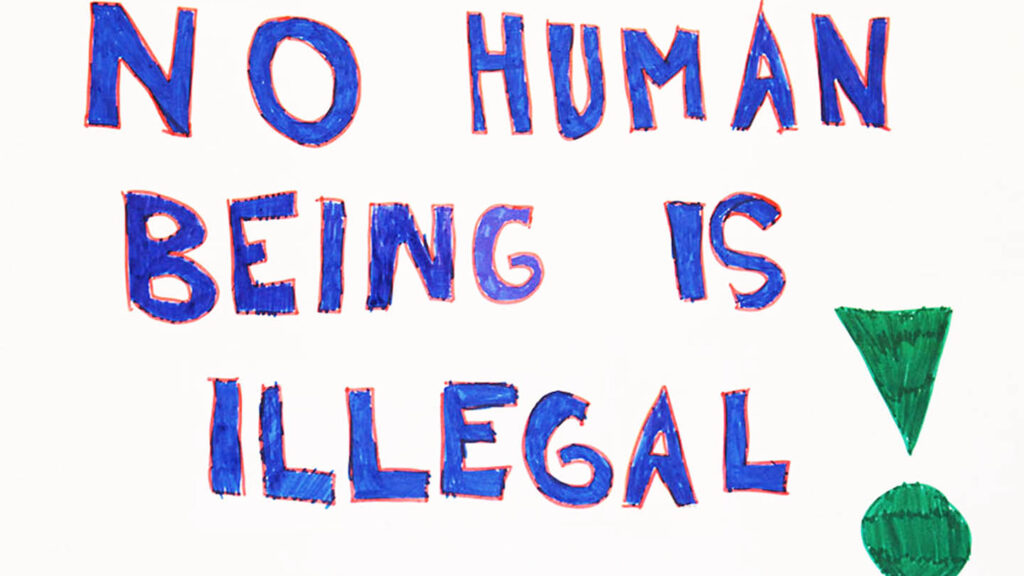 NO HUMAN
BEING IS
ILLEGAL!